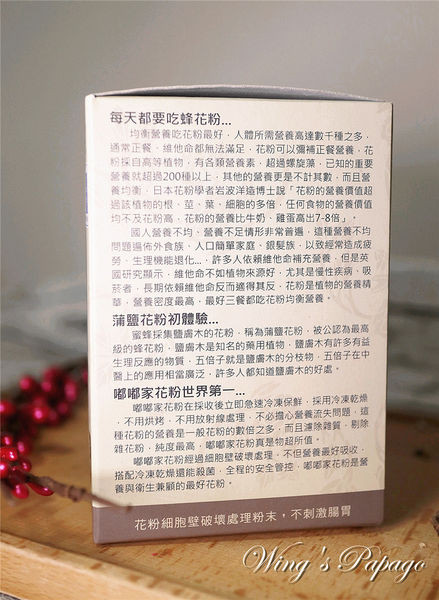 每天都要吃蜂花粉...
均衡營養吃花粉最好，人體所需營養高達數千種之多，
通常正餐、維他命都無法滿足，花粉可以彌補正餐營養，花
粉採自高等植物，有各類營養素，超過螺旋藻，已知的重要
營養就超過200種以上，其他的營養更是不計其數，而且營
養均衡，日本花粉學者岩波洋造博士說「花粉的營養價值超
過該植物的根、莖、葉、細胞的多倍，任何食物的營養價值
均不及花粉高，花粉的營養比牛奶、雞蛋高出7-8倍」。
國人營養不均、營養不足情形非常普遍，這種營養不均
問題遍佈外食族、人口簡單家庭、銀髮族，以致經常造成疲
勞、生理機能退化...，許多人依賴維他命補充營養，但是英
國研究顯示，維他命不如植物來源好，尤其是慢性疾病、吸
菸者，長期依賴維他命反而適得其反，花粉是植物的營養精
華，營養密度最高，最好三餐都吃花粉均衡營養。
蒲鹽花粉初體驗...
蜜蜂採集鹽膚木的花粉，稱為蒲鹽花粉，被公認為最高
級的蜂花粉，鹽膚木是知名的藥用植物，鹽膚木有許多有益
生理反應的物質，五倍子就是鹽膚木的分枝物，五倍子在中
醫上的應用相當廣泛，許多人都知道鹽膚木的好處。
嘟嘟家花粉世界第一...
嘟嘟家花粉在採收後立即急速冷凍保鮮，採用冷凍乾燥
，不用烘烤，不用放射線處理，不必擔心營養流失問題，這
種花粉的營養是一般花粉的數倍之多，而且濾除雜質，剔除
雜花粉，純度最高，嘟嘟家花粉真是物超所值。
嘟嘟家花粉經過細胞壁破壞處理，不但營養最好吸收，
搭配冷凍乾燥還能殺菌，全程的安全管控，嘟嘟家花粉是營
養與衛生兼顧的最好花粉。
花粉細胞壁破壞處理粉末，不刺激腸胃
Wing's Papago